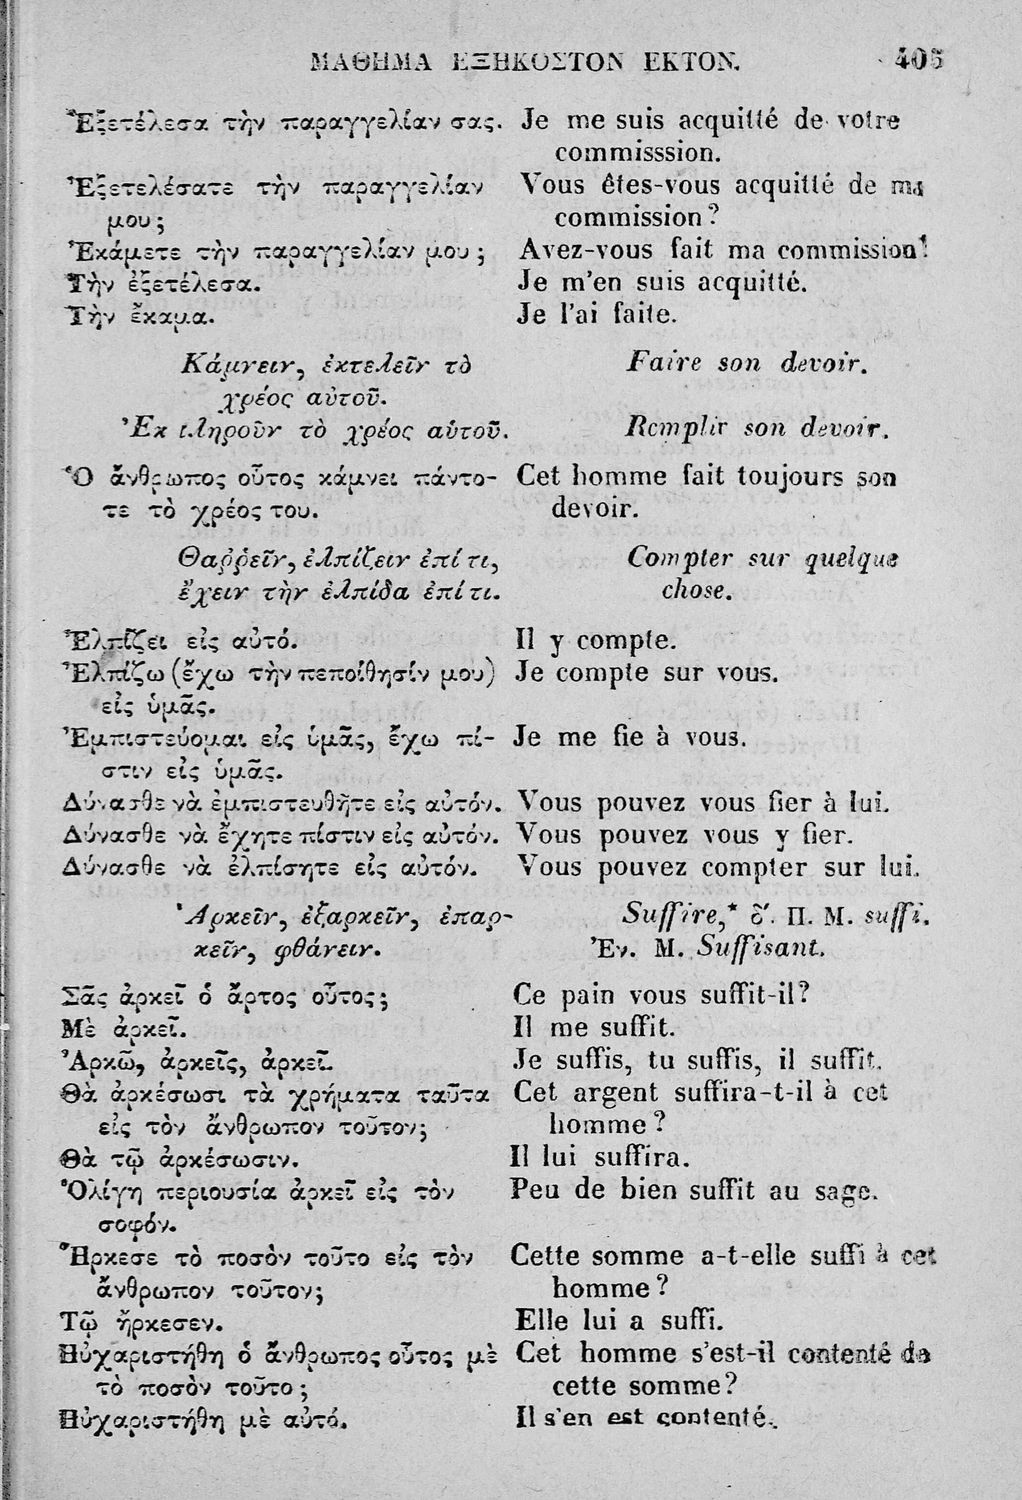 ΜΑΘΗΜΑ ΕΞΗΚΟΣΤΟΝ ΕΚΤΟΝ. 405
Ἐξετέλεσα τὴν παραγγελίαν σας. Je me suis acquitté de votre
commisssion.
Ἐξετελέσατε τὴν παραγγελίαν Vous êtes-vous acquitté de ma
μου; commission?
Ἐκάμετε τὴν παραγγελίαν μου; Avez-vous fait ma commission?
Τὴν ἐξετέλεσα. Je m'en suis acquitté.
Τὴν ἔκαμα. Je l'ai faite.
Κάμνειν, ἐκτελεῖν τὸ Faire son devoir.
χρέος αὑτοῦ.
Ἐκπληροῦν τὸ χρέος αὑτοῦ. Remplir son devoir.
Ὁ ἄνθρωπος οὗτος κάμνει πάντο- Cet homme fait toujours son
τε τὸ χρέος του. devoir.
Θαῤῥεῖν, ἐλπίζειν ἐπί τι, Compter sur quelque
ἔχειν τὴν ἐλπίδα ἐπί τι. chose.
Ἐλπίζει εἰς αὐτό. Il y compte.
Ἐλπίζω (ἔχω τὴν πεποίθησίν μου) Je compte sur vous.
εἰς ὑμᾶς.
Ἐμπιστεύομαι εἰς ὑμᾶς, ἔχω πί- Je me fie à vous.
στιν εἰς ὑμᾶς.
Δύνασθε νὰ ἐμπιστευθῆτε εἰς αὐτόν. Vous pouvez vous fier à lui.
Δύνασθε νὰ ἔχητε πίστιν εἰς αὐτόν. Vous pouvez vous y fier.
Δύνασθε νὰ ἐλπίσητε εἰς αὐτόν. Vous pouvez compter sur lui.
Ἀρκεῖν, ἐξαρκεῖν, ἐπαρ- Suffire,* δ'. Π. Μ. suffi.
κεῖν, φθάνειν. Ἐν. Μ. Suffisant.
Σᾶς ἀρκεῖ ὁ ἄρτος οὗτος; Ce pain vous suffit-il?
Μὲ ἀρκεῖ. Il me suffit.
Ἀρκῶ, ἀρκεῖς, ἀρκεῖ. Je suffis, tu suffis, il suffit.
Θὰ ἀρκέσωσι τὰ χρήματα ταῦτα Cet argent suffira-t-il à cet
εἰς τὸν ἄνθρωπον τοῦτον; homme?
Θὰ τῷ ἀρκέσωσιν. Il lui suffira.
Ὀλίγη περιουσία ἀρκεῖ εἰς τὸν Peu de bien suffit au sage.
σοφόν.
Ἤρκεσε τὸ ποσὸν τοῦτο εἰς τὸν Cette somme a-t-elle suffi à cet
ἄνθρωπον τοῦτον; homme?
Τῷ ἤρκεσεν. Elle lui a suffi.
Ηὐχαριστήθη ὁ ἄνθρωπος οὗτος μὲ Cet homme s'est-il contenté de
τὸ ποσὸν τοῦτο; cette somme?
Ηὐχαριστήθη μὲ αὐτό. Il s'en est contenté.